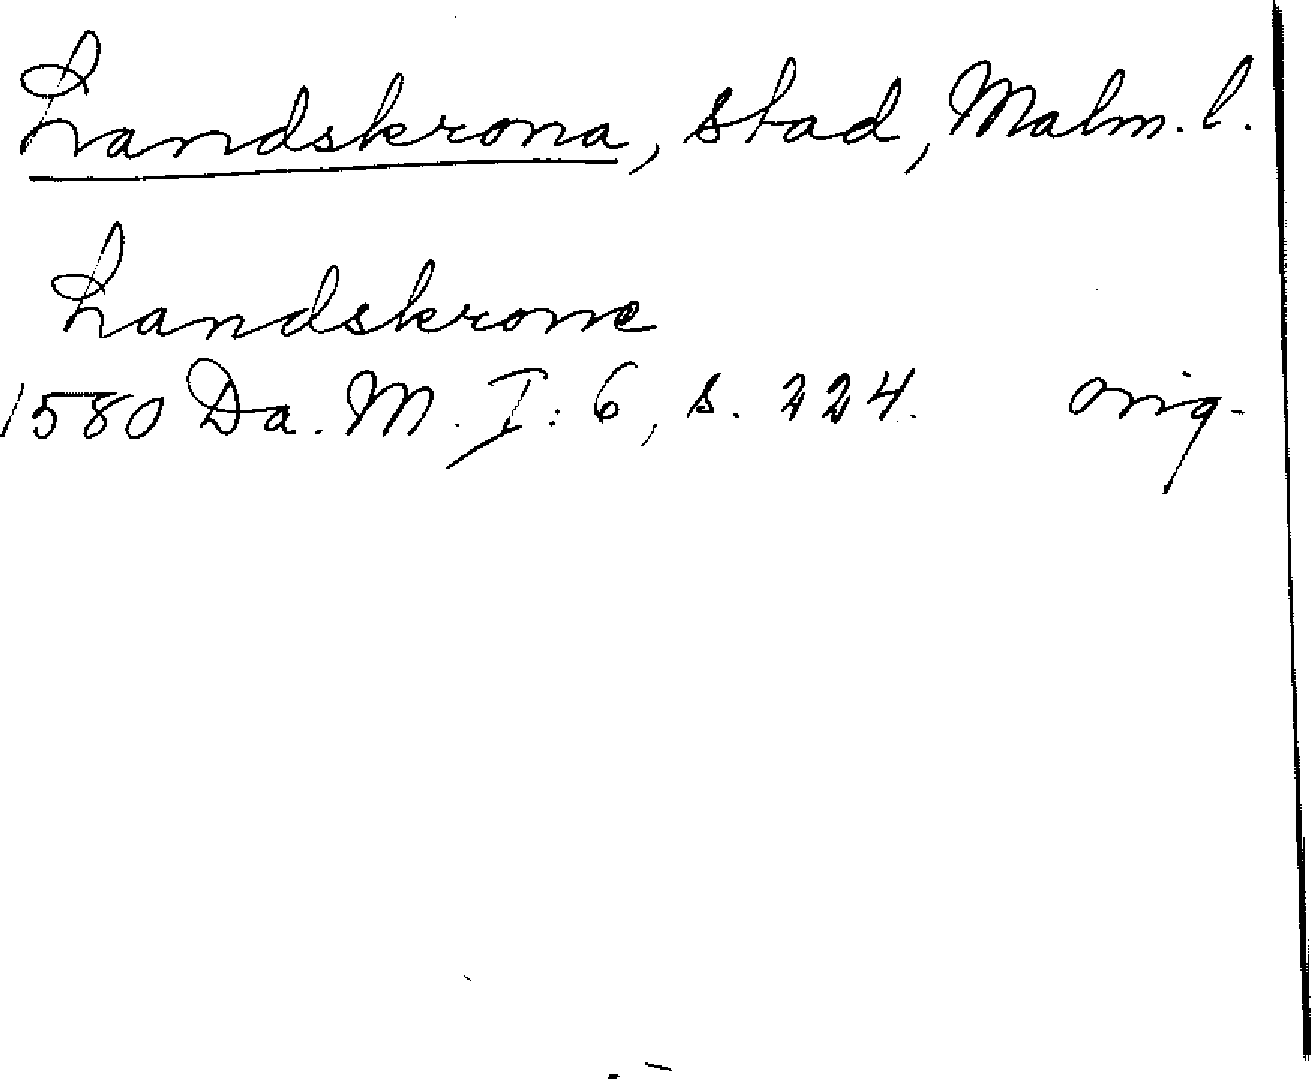 Landskrona, stad, Malm. l.
Landskrone
1580 Da. M. I: 6, s. 224. orig.